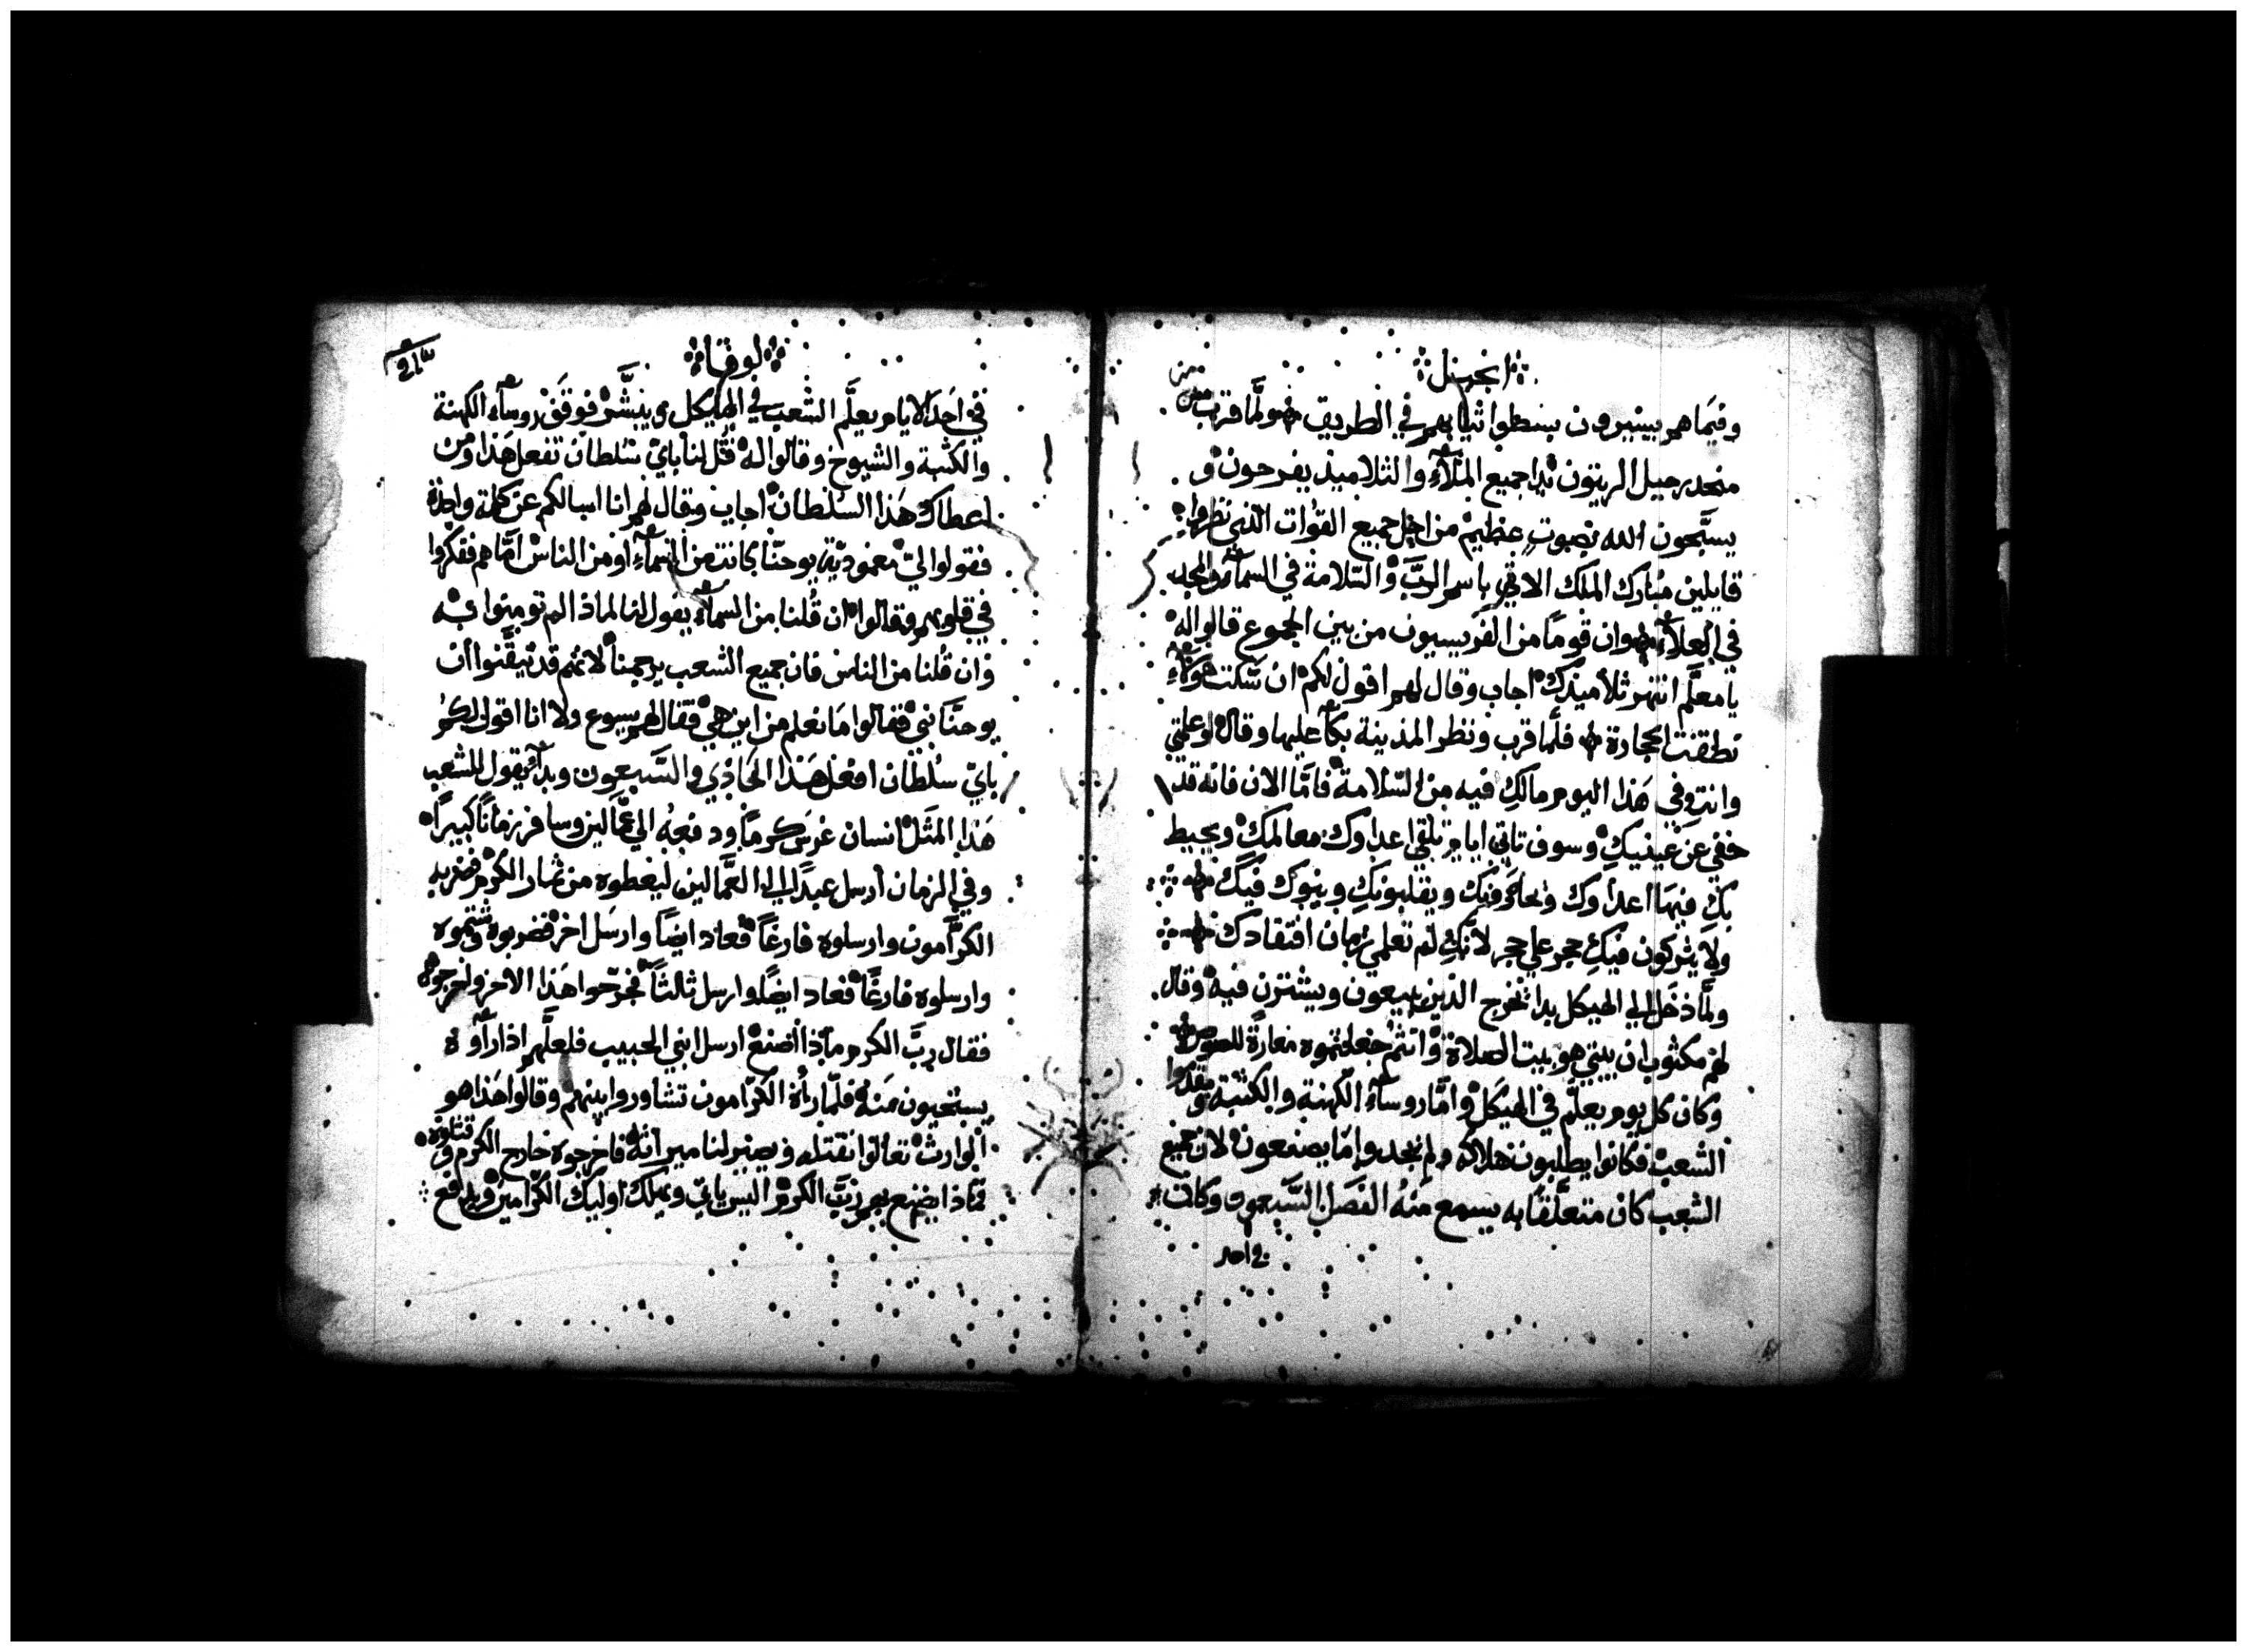 انجيل
وفيما هم يسيرون بسطوا ثيابهم في الطريق ولما قرب من
منحدر جبل الزيتون بدا جميع الملاء والتلاميذ يفرحون و
يسبحون الله بصوت عظيم من اجل جميع القوات الذي نظروا
قايلين مبارك الملك الاتي باسم الرب والسلامة في السماء والمجد
في العلاء وان قوما من الفريسيون من بين الجموع قالوا له
يا معلم انتهر تلاميذك اجاب وقال لهم اقول لكم ان سكت هولاء
نطقت الحجارة فلما قرب ونظر المدينة بكا عليها وقال لو علمتي
وانت في هذا اليوم مالك فيه من السلامة فاما الان فانه قد
خفي عن عينيك وسوف تاتي ايام تلقي اعداوك معالمك ويحيط
بك فيها اعداوك ويقلبونك وبنوك فيك
ولا يتركون فيك حجر علي حجر لانك لم تعلمي زمان افتقادك
ولما دخل الي الهيكل بدا تخرج الذين يبيعون ويشترن فيه وقال
لهم مكتوب ان بيتي هو بيت الصلاة وانتم جعلتموه مغارة للصوص
وكان كل يوم يعلم في الهيكل واما روساء الكهنة والكتبة و مقدموا
الشعب فكانوا يطلبون هلاكه ولم يجدوا ما يصنعون لان جميع
الشعب كان متعلقا به يسمع منه الفصل السبعون وكان
في احد
لوقا
في احد الايام يعلم الشعب في الهيكل ويبشر فوقف روساء الكهنة
والكتبة والشيوخ وقالوا له قل لنا باي سلطان تفعل هذا ومن
اعطاك هذا السلطان اجاب وقال لهم انا اسالكم عن كلمة واحدة
فقولوا لي معمودية يوحنا كانت من السماء او من الناس اما هم ففكروا
في قلوبهم وقالوا ان قلنا من السماء يقول لنا لماذا لم تومنوا به
وان قلنا من الناس فان جميع الشعب يرجمنا لانهم قد تيقنوا ان
يوحنا نبي فقالوا ما نعلم من اين هي فقال لهم يسوع ولا انا اقول لكم
باي سلطان افعل هذا الحادي والسبعون وبدا يقول للشعب
هذا المثل انسان غرس كرما ودفعه الي عمالين وسافر زمانا كبيرا
وفي الزمان ارسل عبدا الي العمالين ليعطوه من ثمار الكرم فضربه
الكرامون وارسلوه فارغا فعاد ايضا وارسل اخر فضربوه وشتموه
وارسلوه فارغا فعاد ايضا وارسل ثالثا فجرحوا هذا الاخر واخرجوه
فقال رب الكرم ماذا اصنع ارسل ابني الحبيب فلعلهم اذا راوه
يستحيون منه فلما راه الكرامون تشاوروا بينهم وقالوا هذا هو
الوارث تعالوا نقتله ويصير لنا ميراثه فاخرجوه خارج الكرم وقتلوه
فماذا يصنع بهم رب الكرم اليس ياتي ويهلك اوليك الكرامين ويدفع